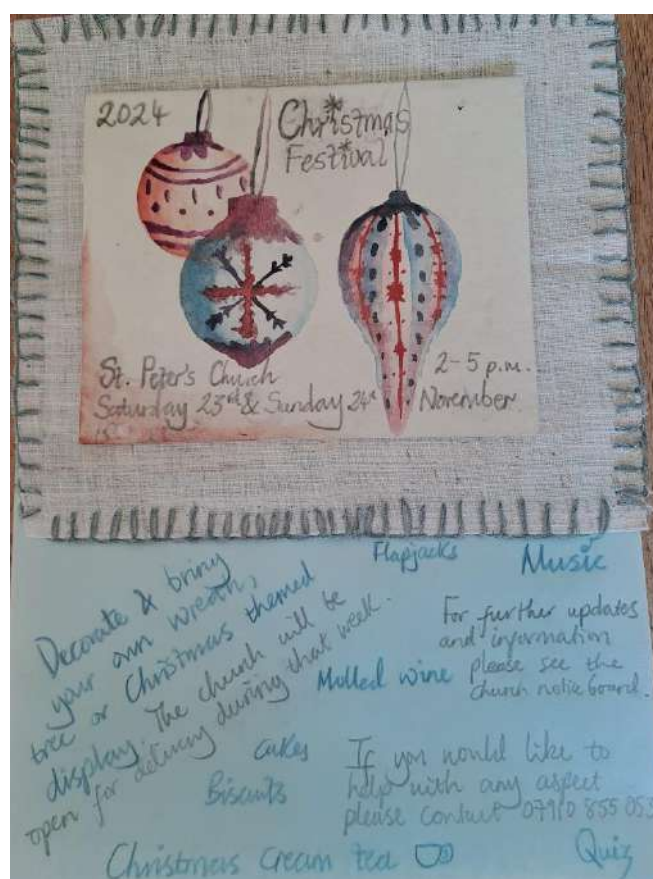 2024
Christmas
Festival
St. Peter's Church
2-5 p.m.
Saturday 23rd & Sunday 24th November
Flapjacks
Music
Decorate & bring
your own wreath,
tree or Christmas themed
display. The church will be
open for delivery during that week.
For further updates
and information
please see the
church notice board.
Mulled wine
Cakes
Biscuits
If you would like to
help with any aspect
please contact 07910 855 053
Christmas Cream tea
Quiz